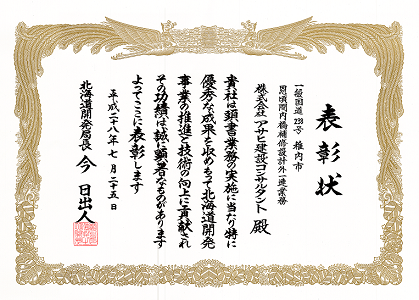 表彰状
一般国道238号 稚内市
恵頃間内橋補修設計外一連業務
株式会社アサヒ建設コンサルタント 殿
貴社は頭書業務の実施に当たり特に
優秀な成果を収めもって北海道開発
事業の推進と技術の向上に貢献され
その功績は誠に顕著なものがあります
よってここに表彰します
平成二十八年七月二十五日
北海道開発局長 今 日出人